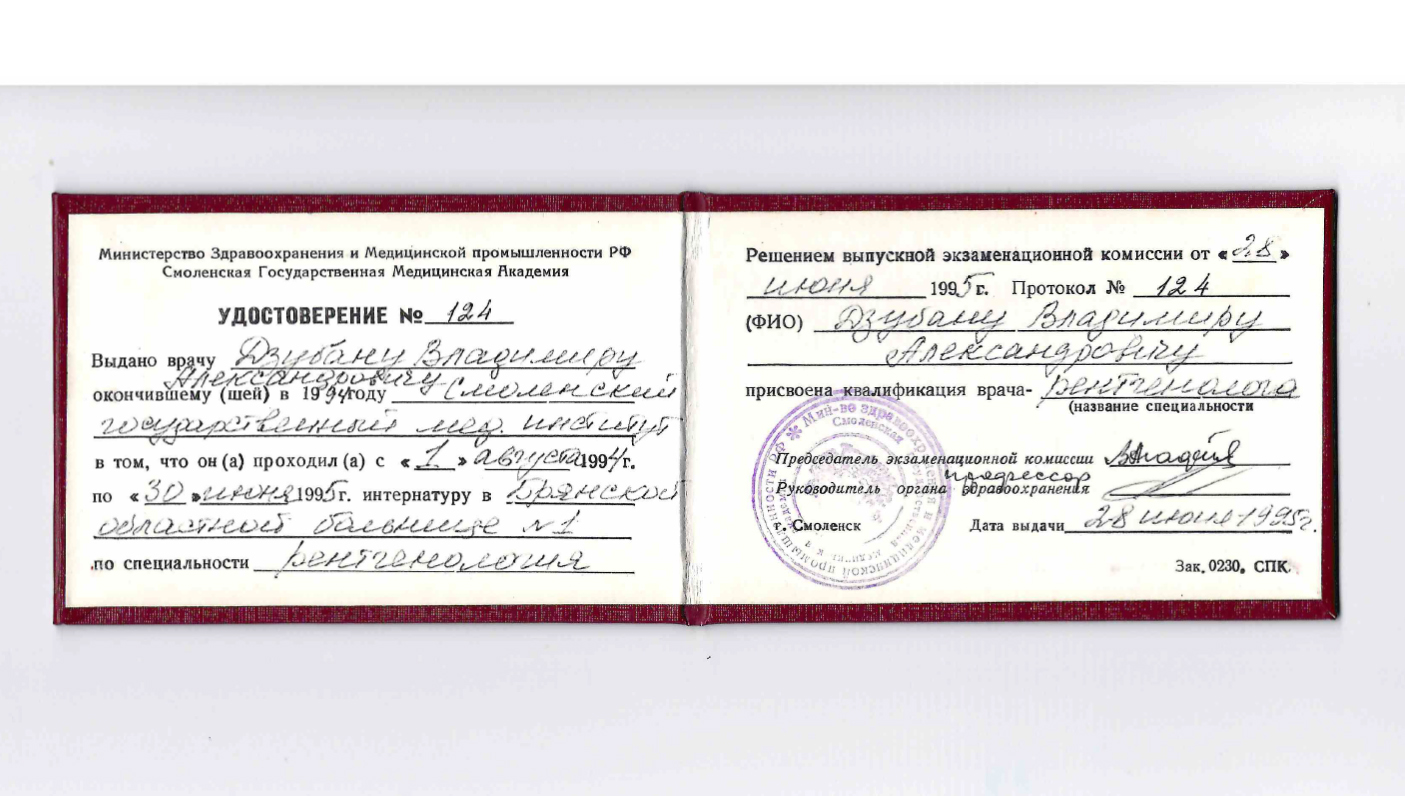 Министерство Здравоохранения и Медицинской промышленности РФ
Смоленская Государственная Медицинская Академия
УДОСТОВЕРЕНИЕ № 124
Выдано врачу Дзубану Владимиру
Александровичу
окончившему (шей) в 1994 году Смоленский
государственный мед. институт
в том, что он (а) проходил (а) с «1» августа 1994 г.
по «30» июня 1995 г. интернатуру в Брянской
областной больнице №1
по специальности рентгенология
Решением выпускной экзаменационной комиссии от «28»
июня 1995 г. Протокол № 124
(ФИО) Дзубану Владимиру
Александровичу
присвоена квалификация врача- рентгенолога
(название специальности
Председатель экзаменационной комиссии
профессор
Руководитель органа здравоохранения
г. Смоленск Дата выдачи 28 июня 1995г.
Зак. 0230. СПК.
Мин-во здравоохранения и медицинской промышленности РФ
Смоленская